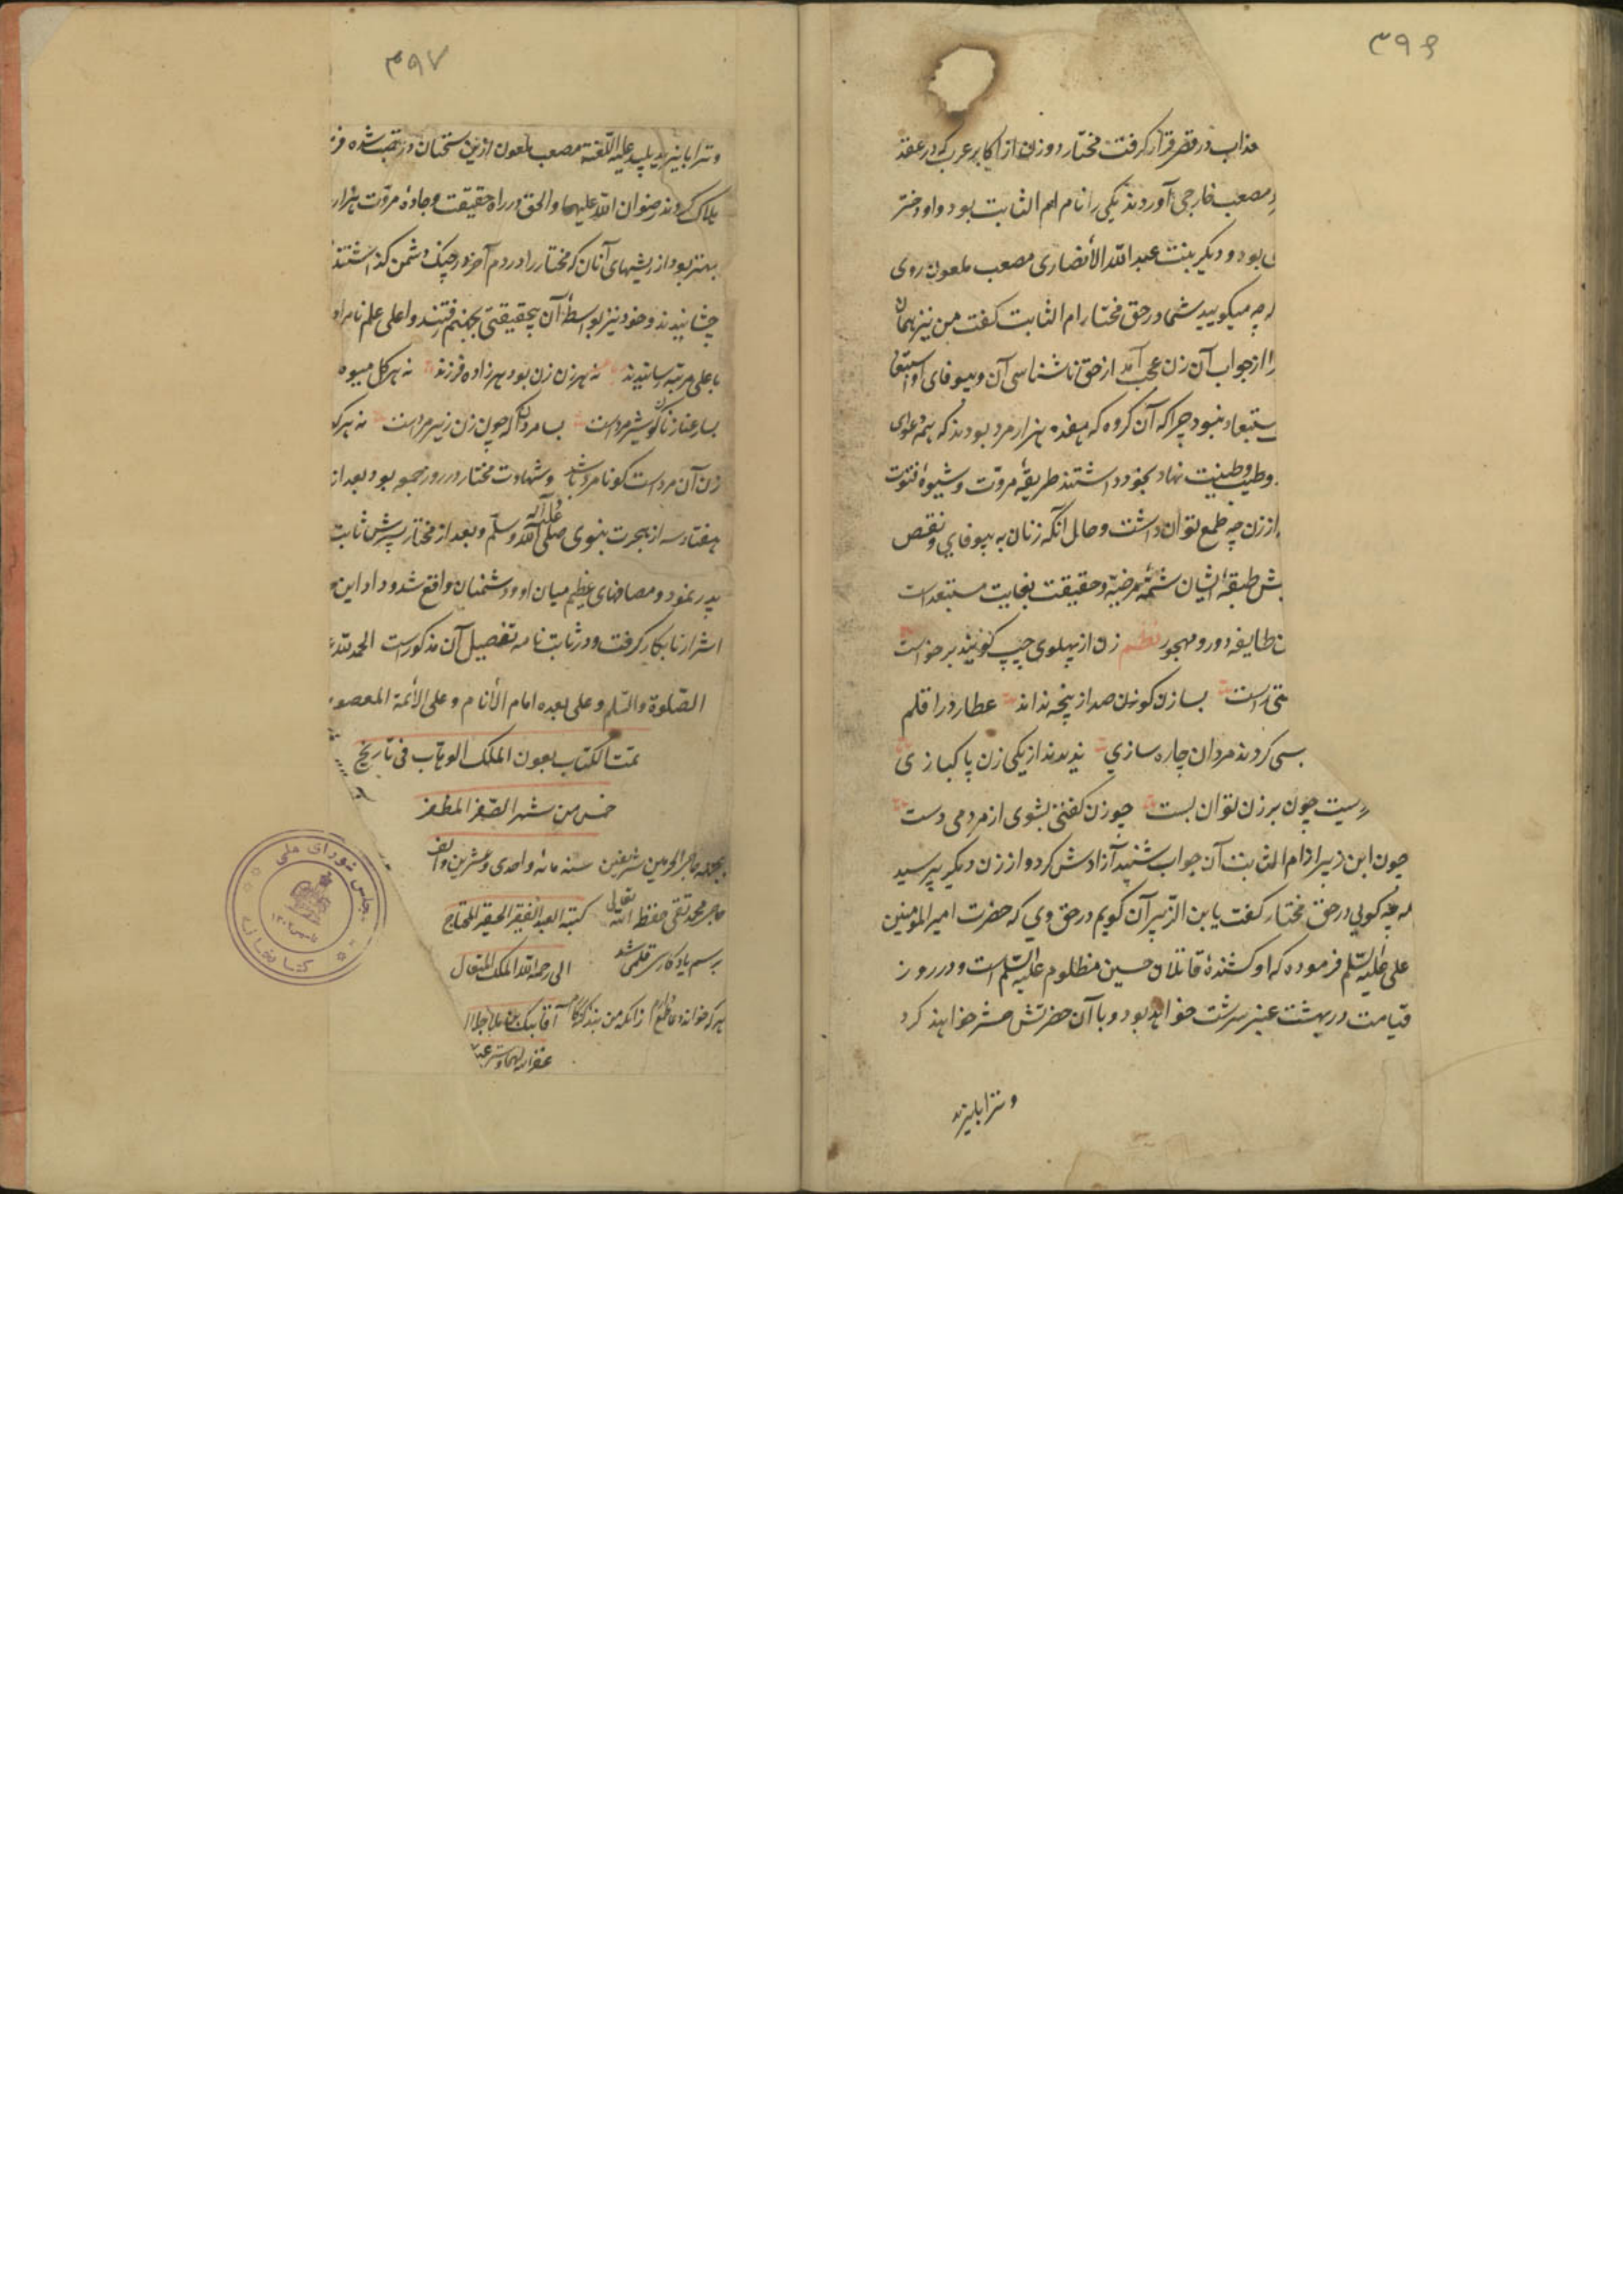 ۳۹۶
عذاب در قصر قرار گرفت مختار دو زن از اکابر عرب که در عقد
مصعب خارجی آوردند یکی را نام ام الثابت بود و او دختر
بود و دیگر بنت عبد الله الأنصاری مصعب ملعون روی
چه میگویید شما در حق مختار ام الثابت گفت من نیز همان
را از جواب آن زن عجب آمد از حق ناشناسی آن و بیوفای او استبعاد
ستبعاد نبود چرا که آن گروه که هفده هزار مرد بودند که همه دعوای
وطیب طینت نهاد بخود داشتند طریقهٔ مروّت و شیوهٔ فتوت
از زن چه طمع توان داشت و حال آنکه زنان به بیوفایی و نقص
ش طبقهٔ ایشان شمّهٔ مرضیّه و حقیقت بغایت مستبعد است
ن طایفه دور و مهجور نظم زن از پهلوی چپ گویند برخواست
راست بسا زن کو زن صد از پنجه نداند عطارد را قلم
بسی کردند مردان چاره سازی ندیدند از یکی زن پاکبازی
سیت چون بر زن توان بست چو زن گفتی بشوی از مردمی دست
چون ابن زبیر از ام الثابت آن جواب شنید آزادش کرد و از زن دیگر پرسید
چه گویی در حق مختار گفت یا بن الزّبیر آن گویم در حق وی که حضرت امیر المؤمنین
علی علیه السّلم فرموده که او کشندهٔ قاتلان حسین مظلوم علیه السّلم است و در روز
قیامت در بهشت عنبر سرشت خواهد بود و با آن حضرتش حشر خواهند کرد
و ترا با یزید
۳۹۷
و ترا با یزید پلید علیه اللّعنة مصعب ملعون ازین سخنان در غضب شده
هلاک کردند رضوان اللّه علیهما و الحق در راه حقیقت و جادهٔ مروّت هزار
بهتر بود از ریشهای آنان که مختار را در دم آخر در چنگ دشمن گذاشتند
چشانیدند و خود نیز بواسطهٔ آن بیحقیقتی بجهنم رفتند و اعلی علم نامراد
باعلی مرتبه رسانیدند نه هر زن زن بود هر زاده فرزند نه هر گل میوه
بسا رعنا زنان کو شیر مرد است بسا مردان که چون زن زیر مرد است نه هر که
زن آن مرد است کو نامرد باشد و شهادت مختار در روز جمعه بود بعد از
هفتاد سه از هجرت نبوی صلی اللّه علیه و آله و سلّم و بعد از مختار پسرش ثابت
پدر نمود و مصافهای عظیم میان او و دشمنان واقع شد و داد این
اشرار نابکار گرفت و در ثابت نامه تفصیل آن مذکورست الحمد لله
الصّلوة و السّلم و علی بعده امام الأنام و علی الأئمة المعصو
تمت الکتاب بعون الملک الوهّاب فی تاریخ
خمس من شهر الصّفر المظفر
حاجر الحرمین شریفین سنه مائه و احدی و عشرین و الف
حاجر محمد تقی حفظ الله تعالی کتبه العبد الفقیر الحقیر المحتاج
برسم یادگار قلمی شد الی رحمة الله الملک المتعال
هر که خواند دعا طمع دارم زانکه من بنده گنه کارم آقا بیک بن ملا جلال
غفر الله لهما و ستر عیبهما
مجلس شورای ملی
کتابخانه